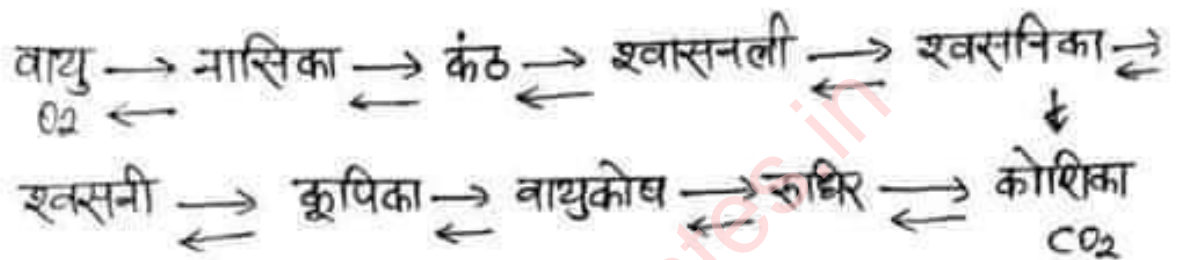 वायु → नासिका → कंठ → श्वासनली → श्वसनिका →
O2 ← ← ← ← ←
↓
श्वसनी → कूपिका → वायुकोष → रुधिर → कोशिका
← ← ← ← CO2
tes.in